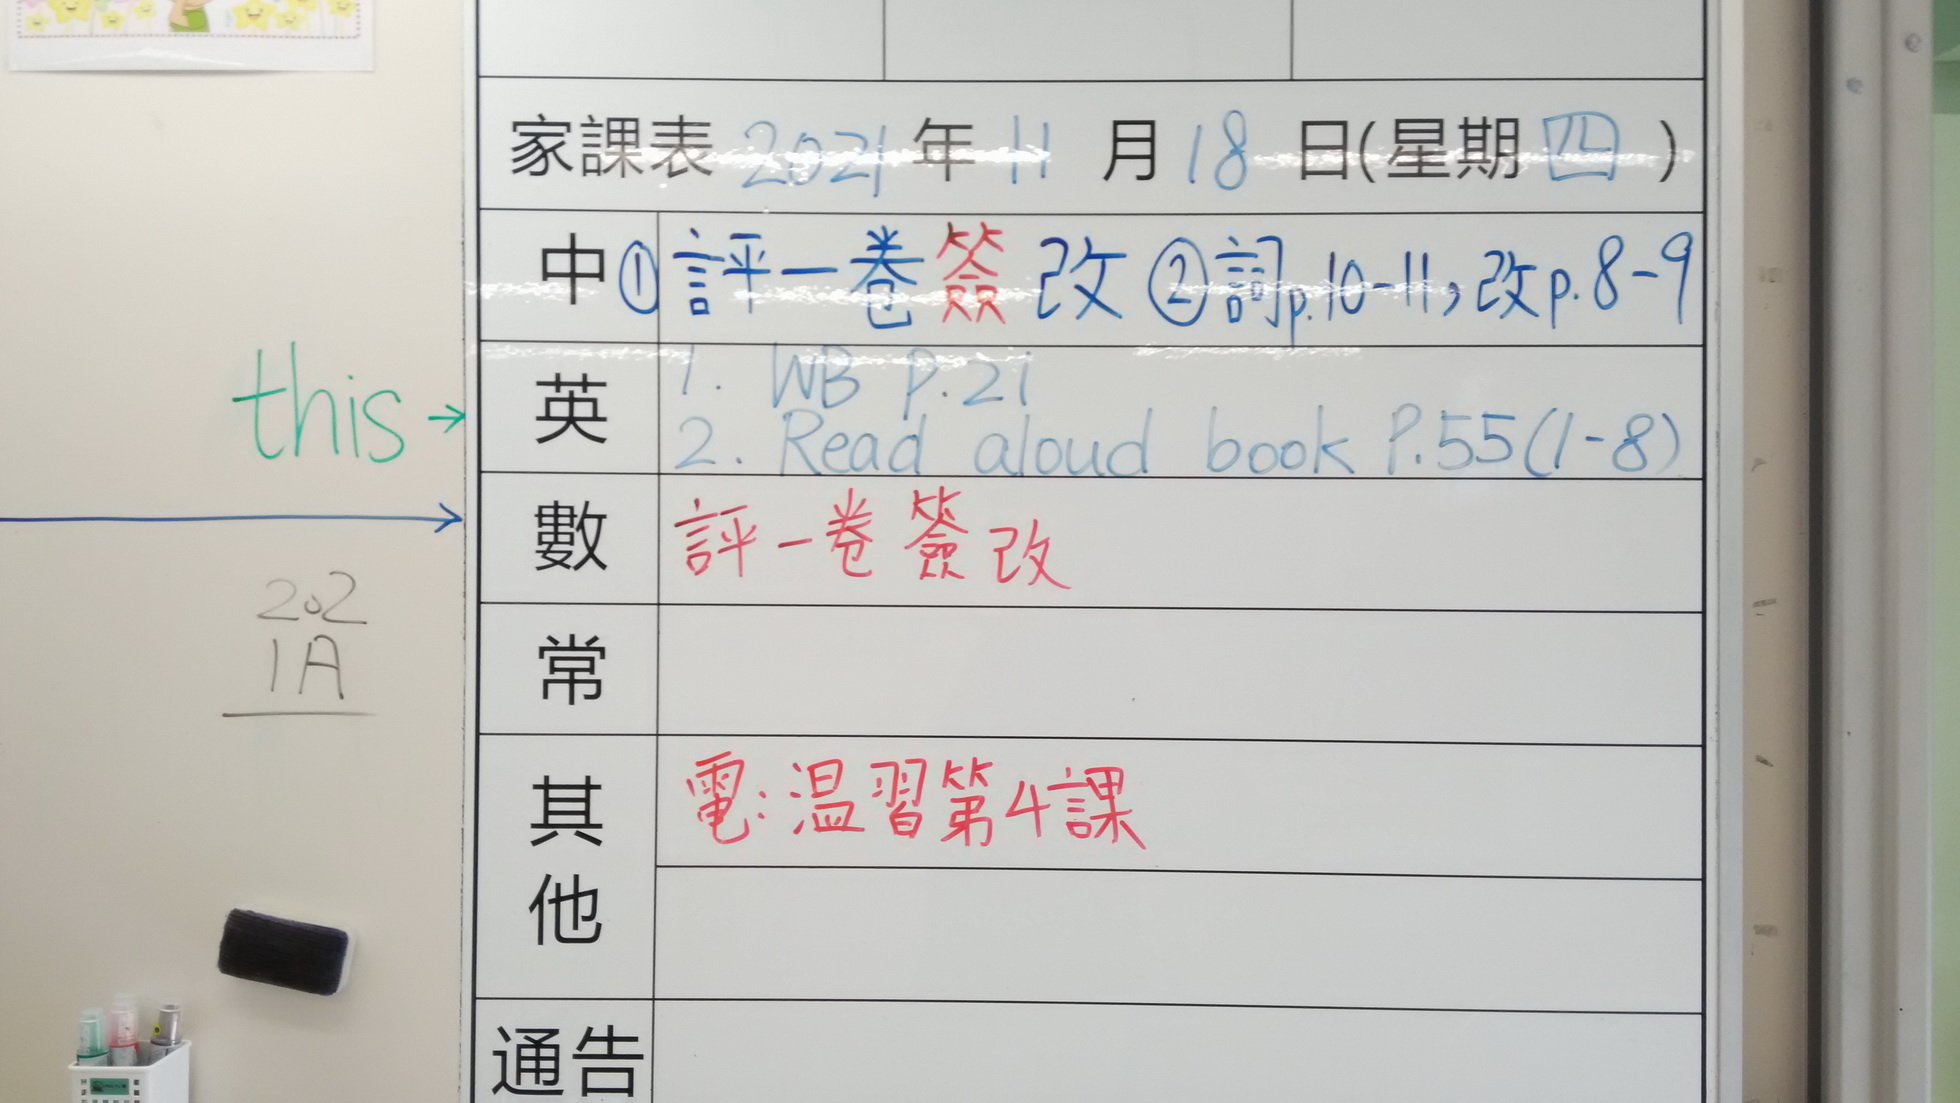 家課表 2021 年 11 月 18 日(星期 四 )
中 ① 評一卷簽改 ② 詞p.10-11,改p.8-9
this →
英
1. WB P.21
2. Read aloud book P.55(1-8)
數 評一卷簽改
202
1A
常
其他
電:温習第4課
通告